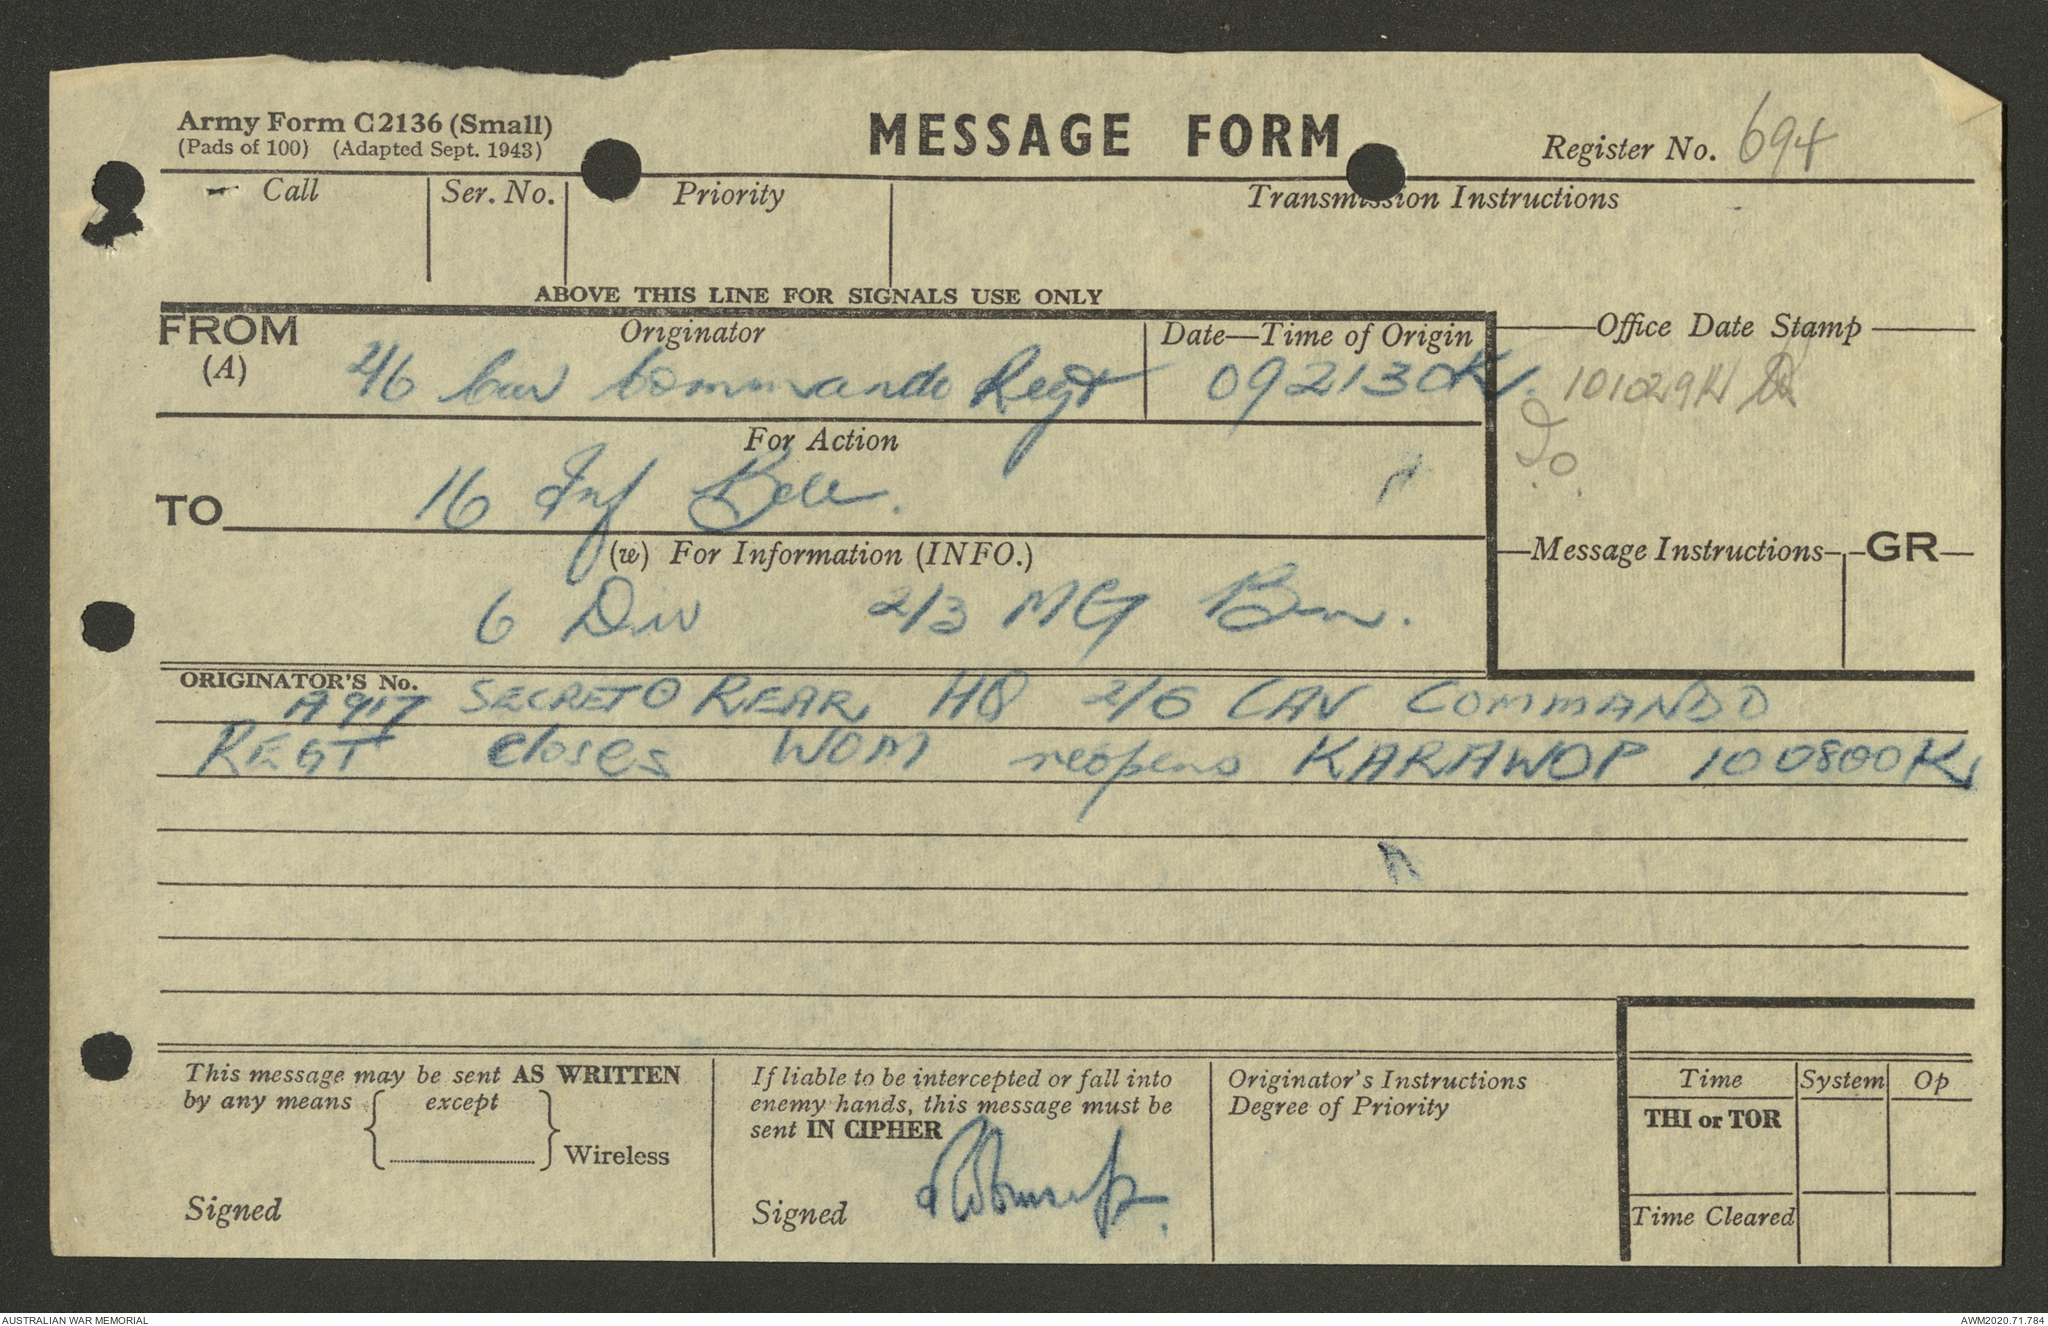 Army Form C2136 (Small)
(Pads of 100) (Adapted Sept. 1943)
MESSAGE FORM
Register No. 694
Call
Ser. No.
Priority
Transmission Instructions
ABOVE THIS LINE FOR SIGNALS USE ONLY
FROM
(A)
Originator
2/6 Cav Commando Regt
Date—Time of Origin
092130K
Office Date Stamp
101029K
For Action
TO
16 Inf Bde.
(w) For Information (INFO.)
6 Div 2/3 MG Bn.
Message Instructions
GR
ORIGINATOR'S No.
A917 SECRET REAR HQ 2/6 CAV COMMANDO
REGT closes WOM reopens KARAWOP 100800K
This message may be sent AS WRITTEN
by any means except
Wireless
Signed
If liable to be intercepted or fall into
enemy hands, this message must be
sent IN CIPHER
Signed
Originator's Instructions
Degree of Priority
Time System Op
THI or TOR
Time Cleared
AUSTRALIAN WAR MEMORIAL
AWM2020.71.784